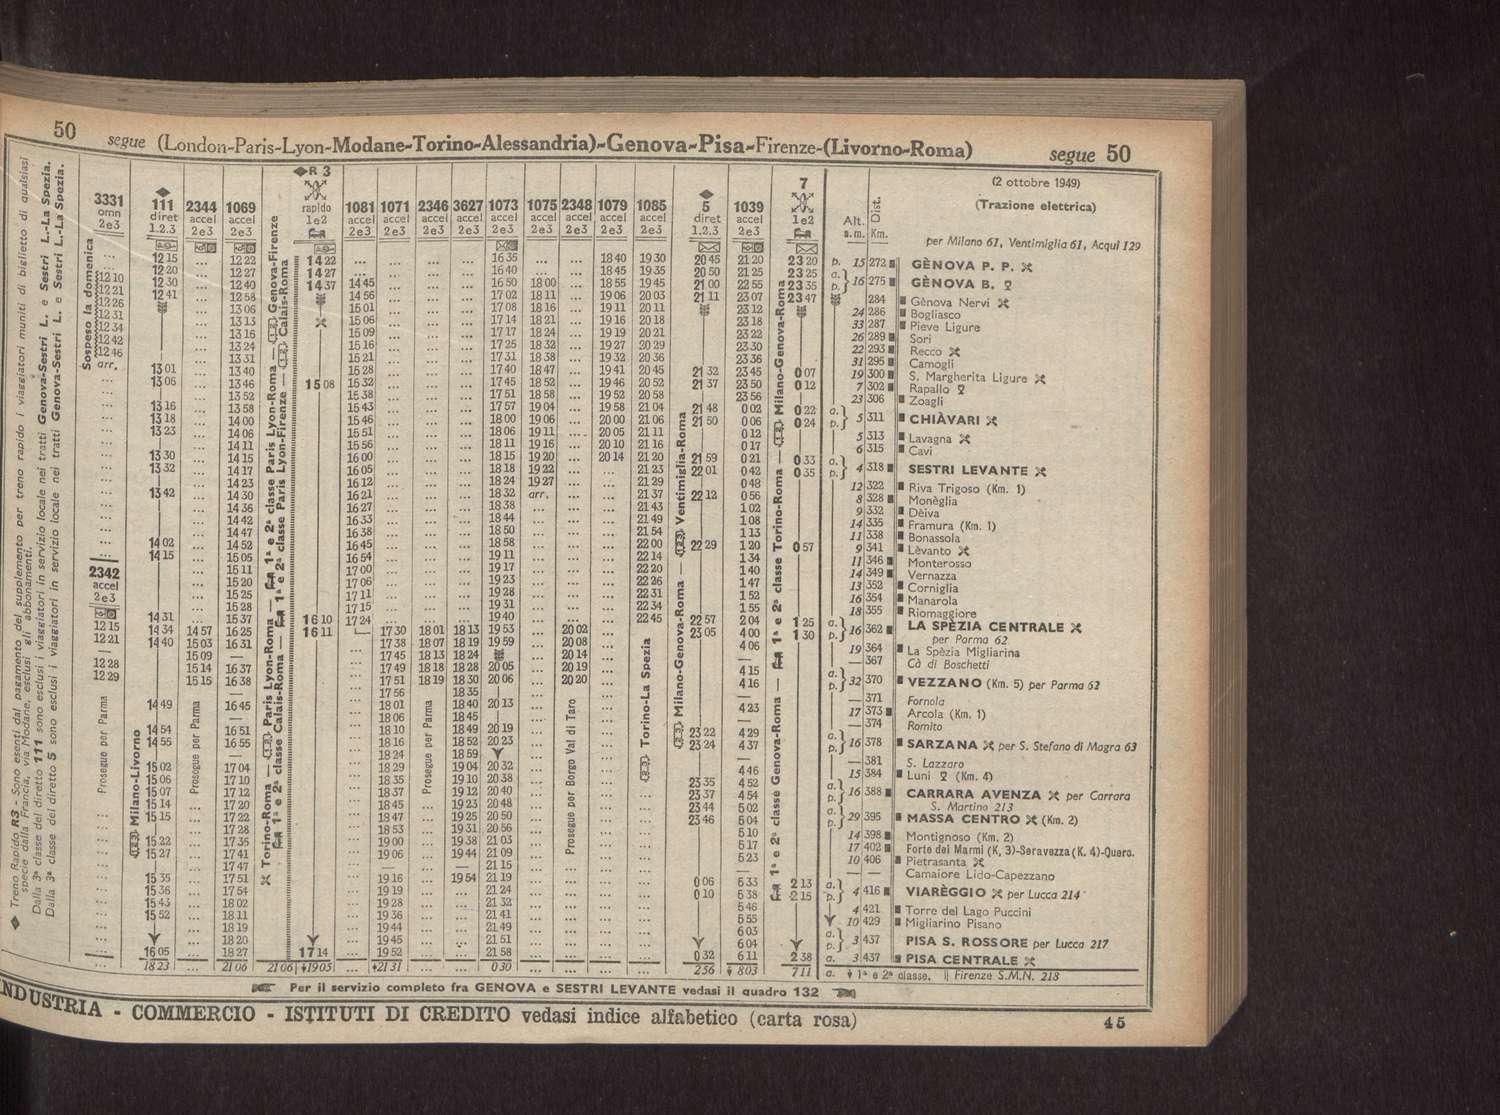 50 segue (London-Paris-Lyon-Modane-Torino-Alessandria)-Genova-Pisa-Firenze-(Livorno-Roma) segue 50
◆ Treno Rapido R3 - Sono esenti dal pagamento del supplemento per treno rapido i viaggiatori muniti di biglietto di qualsiasi
specie dalla Francia, via Modane, esclusi gli abbonamenti.
Dalla 3ª classe del diretto 111 sono esclusi i viaggiatori in servizio locale nei tratti Genova-Sestri L. e Sestri L.-La Spezia.
Dalla 3ª classe del diretto 5 sono esclusi i viaggiatori in servizio locale nei tratti Genova-Sestri L. e Sestri L.-La Spezia.
3331 omn 2e3
Sospeso la domenica
12 10
12 21
12 26
12 31
12 34
12 42
12 46
arr.
2342 accel 2e3
12 15
12 21
12 28
12 29
Prosegue per Parma
◆ 111 diret 1.2.3
12 15
12 20
12 30
12 41
13 01
13 06
13 16
13 18
13 23
13 30
13 32
13 42
14 02
14 15
14 31
14 34
14 40
14 49
14 54
14 55
15 02
15 06
15 07
15 14
15 15
15 22
15 27
15 35
15 36
15 43
15 52
16 05
18 23
Milano-Livorno
2344 accel 2e3
14 57
15 03
15 09
15 14
15 15
Prosegue per Parma
1069 accel 2e3
12 22
12 27
12 40
12 58
13 06
13 13
13 16
13 24
13 31
13 40
13 46
13 52
13 58
14 00
14 06
14 11
14 15
14 17
14 23
14 30
14 36
14 42
14 47
14 52
15 05
15 11
15 20
15 25
15 28
15 37
16 25
16 31
16 37
16 38
16 45
16 51
16 55
17 04
17 10
17 12
17 20
17 22
17 28
17 35
17 41
17 47
17 51
17 54
18 02
18 11
18 19
18 20
18 27
21 06
Torino-Roma — Paris Lyon-Roma — 1ª e 2ª classe Paris Lyon-Roma — Genova-Firenze
1ª e 2ª classe Calais-Roma — 1ª e 2ª classe Paris Lyon-Firenze — Calais-Roma
◆R 3 rapido 1e2
14 22
14 27
14 37
15 08
16 10
16 11
17 14
21 06 19 05
1081 accel 2e3
14 45
14 56
15 01
15 06
15 09
15 16
15 21
15 28
15 32
15 38
15 43
15 46
15 51
15 56
16 00
16 05
16 12
16 21
16 27
16 33
16 38
16 45
16 54
17 00
17 06
17 11
17 15
17 24
1071 accel 2e3
17 30
17 38
17 45
17 49
17 51
17 56
18 01
18 06
18 10
18 16
18 24
18 29
18 35
18 37
18 45
18 47
18 53
19 00
19 06
19 16
19 19
19 28
19 36
19 44
19 45
19 52
21 31
2346 accel 2e3
18 01
18 07
18 13
18 18
18 19
Prosegue per Parma
3627 accel 2e3
18 13
18 19
18 24
18 28
18 30
18 35
18 40
18 45
18 49
18 52
18 59
19 04
19 10
19 12
19 23
19 25
19 31
19 38
19 44
19 54
1073 accel 2e3
16 35
16 40
16 50
17 02
17 08
17 14
17 17
17 25
17 31
17 40
17 45
17 51
17 57
18 00
18 06
18 11
18 15
18 18
18 24
18 32
18 38
18 44
18 50
18 58
19 11
19 17
19 23
19 28
19 31
19 40
19 53
19 59
20 05
20 06
20 13
20 19
20 23
20 32
20 38
20 40
20 48
20 50
20 56
21 03
21 09
21 15
21 19
21 24
21 32
21 41
21 49
21 51
21 58
0 30
1075 accel 2e3
18 00
18 11
18 16
18 21
18 24
18 32
18 38
18 47
18 52
18 58
19 04
19 06
19 11
19 16
19 20
19 22
19 27
arr.
2348 accel 2e3
20 02
20 08
20 14
20 19
20 20
Prosegue per Borgo Val di Taro
1079 accel 2e3
18 40
18 45
18 55
19 06
19 11
19 16
19 19
19 27
19 32
19 41
19 46
19 52
19 58
20 00
20 05
20 10
20 14
1085 accel 2e3
19 30
19 35
19 45
20 03
20 11
20 18
20 21
20 29
20 36
20 45
20 52
20 58
21 04
21 06
21 11
21 16
21 20
21 23
21 29
21 37
21 43
21 49
21 54
22 00
22 14
22 20
22 26
22 31
22 34
22 45
Torino-La Spezia
Milano-Genova-Roma — Ventimiglia-Roma
◆ 5 diret 1.2.3
20 45
20 50
21 00
21 11
21 32
21 37
21 48
21 50
21 59
22 01
22 12
22 29
22 57
23 05
23 22
23 24
23 35
23 37
23 44
23 46
0 06
0 10
0 32
2 56
1039 accel 2e3
21 20
21 25
22 55
23 07
23 12
23 18
23 22
23 30
23 36
23 45
23 50
23 56
0 02
0 06
0 12
0 17
0 21
0 42
0 48
0 56
1 02
1 08
1 13
1 20
1 34
1 40
1 47
1 52
1 55
2 04
4 00
4 06
4 15
4 16
4 23
4 29
4 37
4 46
4 52
4 54
5 02
5 04
5 10
5 17
5 23
5 33
5 38
5 46
5 55
6 03
6 04
6 11
8 03
1ª e 2ª classe Genova-Roma — 1ª e 2ª classe Torino-Roma — Milano-Genova-Roma
7 1e2
23 20
23 25
23 35
23 47
0 07
0 12
0 22
0 24
0 33
0 35
0 57
1 25
1 30
2 13
2 15
2 38
7 11
(2 ottobre 1949)
(Trazione elettrica)
Alt. s.m. Dist. Km. per Milano 61, Ventimiglia 61, Acqui 129
p. 15 272 GÈNOVA P. P.
a. p. 16 275 GÈNOVA B.
284 Gènova Nervi
24 286 Bogliasco
33 287 Pieve Ligure
26 289 Sori
22 293 Recco
31 295 Camogli
19 300 S. Margherita Ligure
7 302 Rapallo
23 306 Zoagli
a. p. 5 311 CHIÀVARI
5 313 Lavagna
6 315 Cavi
a. p. 4 318 SESTRI LEVANTE
12 322 Riva Trigoso (Km. 1)
8 328 Monèglia
9 332 Dèiva
14 335 Framura (Km. 1)
11 338 Bonassola
9 341 Lèvanto
11 346 Monterosso
14 349 Vernazza
13 352 Corniglia
16 354 Manarola
18 355 Riomaggiore
a. p. 16 362 LA SPÈZIA CENTRALE
per Parma 62
19 364 La Spèzia Migliarina
— 367 Cà di Boschetti
a. p. 32 370 VEZZANO (Km. 5) per Parma 62
— 371 Fornola
17 373 Arcola (Km. 1)
— 374 Romito
a. p. 16 378 SARZANA per S. Stefano di Magra 63
— 381 S. Lazzaro
15 384 Luni (Km. 4)
a. p. 16 388 CARRARA AVENZA per Carrara
S. Martino 213
a. p. 29 395 MASSA CENTRO (Km. 2)
14 398 Montignoso (Km. 2)
17 402 Forte dei Marmi (K. 3)-Seravezza (K. 4)-Querc.
10 406 Pietrasanta
— Camaiore Lido-Capezzano
a. p. 4 416 VIARÈGGIO per Lucca 214
4 421 Torre del Lago Puccini
10 429 Migliarino Pisano
a. p. 3 437 PISA S. ROSSORE per Lucca 217
a. 3 437 PISA CENTRALE
a. 1ª e 2ª classe. || Firenze S.M.N. 218
Per il servizio completo fra GENOVA e SESTRI LEVANTE vedasi il quadro 132
INDUSTRIA - COMMERCIO - ISTITUTI DI CREDITO vedasi indice alfabetico (carta rosa)
45